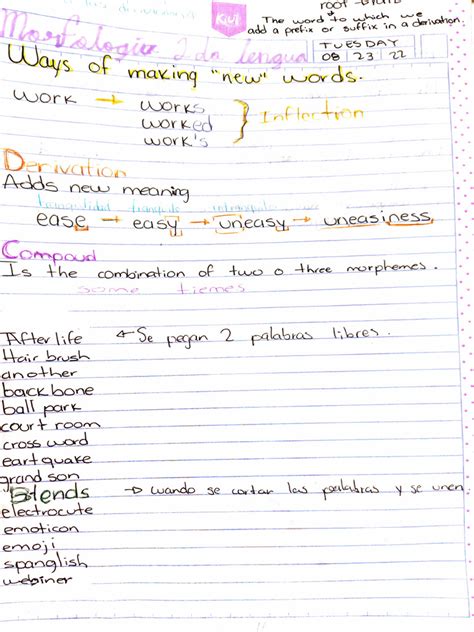 root
The word to which we
add a prefix or suffix in a derivation.
Morfologia 2 da lengua
TUESDAY
08 23 22
Ways of making "new" words.
work → works
worked
work's
Inflection
Derivation
Adds new meaning
ease → easy → uneasy → uneasiness
Compoud
Is the combination of two o three morphemes.
some tiemes
After life ← Se pegan 2 palabras libres.
Hair brush
another
back bone
ball park
court room
cross word
eartquake
grand son
Blends → cuando se cortar las palabras y se unen
electrocute
emoticon
emoji
spanglish
webiner